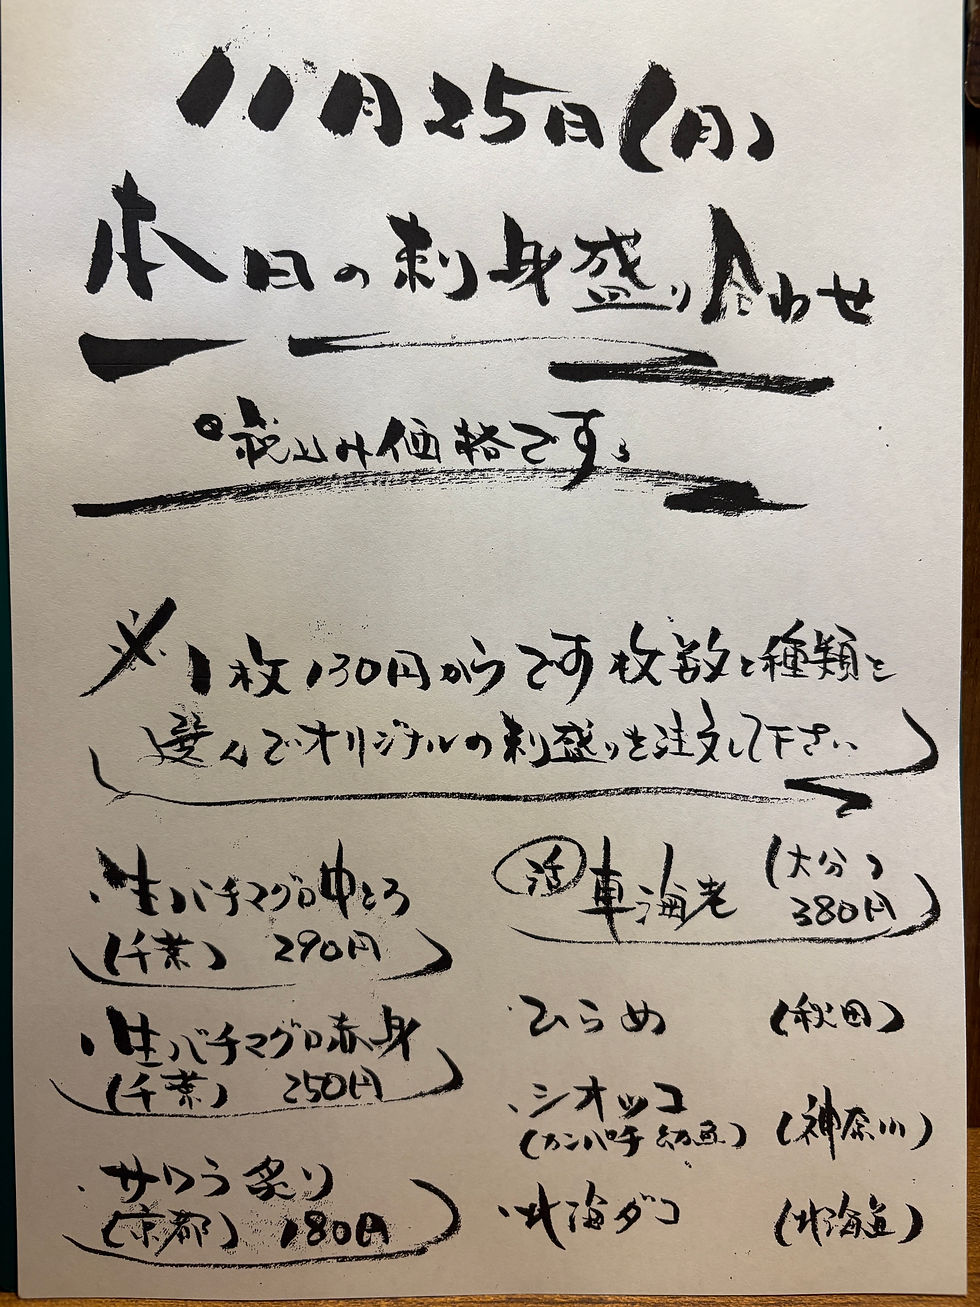 11月25日(月)
本日の刺身盛り合わせ
◎税込み価格です。
※1枚130円からです枚数と種類を
選んでオリジナルの刺盛りを注文して下さい
・生バチマグロ中とろ
(千葉) 290円
・生バチマグロ赤身
(千葉) 250円
・サワラ炙り
(京都) 180円
活 車海老 (大分)
380円
・ひらめ (秋田)
・シオッコ
(カンパチ幼魚) (神奈川)
・北海ダコ (北海道)